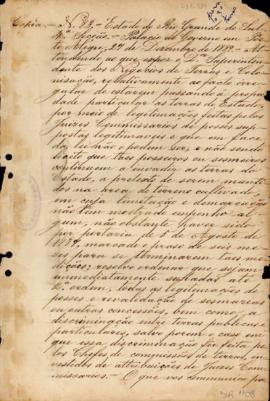 Copia. — N. 23. — Estado do Rio Grande do Sul
2ª Secção. — Palacio do Governo em Porto
Alegre, 24 de Dezembro de 1889. — At-
tendendo ao que expoz o Dr. Superinten-
dente dos Negocios de Terras e Colo-
nisação, relativamente ao facto irre-
gular de estarem passando á pro-
priedade particular as terras do Estado,
por meio de legitimações feitas pelos
Juizes Commissarios de posses sup-
postas legitimaveis e que em face
da lei não o podem ser, e não sendo
licito que taes posseiros ou sesmeiros
continuem a encravar as terras do
Estado, a pretexto de serem manti-
dos na area de terreno cultivado,
em cuja limitação e demarcação
não tem mostrado empenho al-
gum, não obstante haver sido
por portaria de 5 de Agosto de
1889, marcado o prazo de seis me-
zes para se terminarem taes me-
dições; resolvo ordenar que sejam
immediatamente sustadas até
2ª ordem, todas as legitimações de
posses e revalidação de sesmarias
ou outras concessões, bem como a
discriminação entre terras publicas e
particulares, salvo porem o caso em
que essa discriminação for feita pe-
los Chefes de commissões de terras, in-
vestidos de attribuições de Juizes Com-
missarios. — O que vos communico pa-